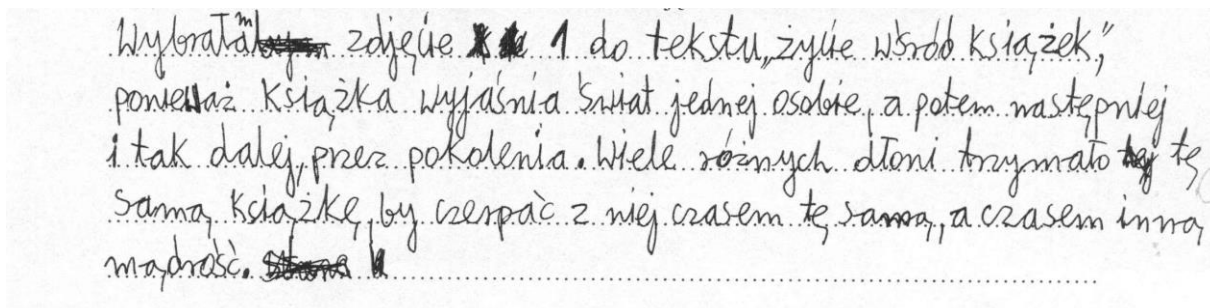 Wybrałam zdjęcie 1 do tekstu „życie wśród książek",
ponieważ książka wyjaśnia świat jednej osobie, a potem następniej
i tak dalej, przez pokolenia. Wiele różnych dłoni trzymało tę
samą książkę, by czerpać z niej czasem tę samą, a czasem inną
mądrość.